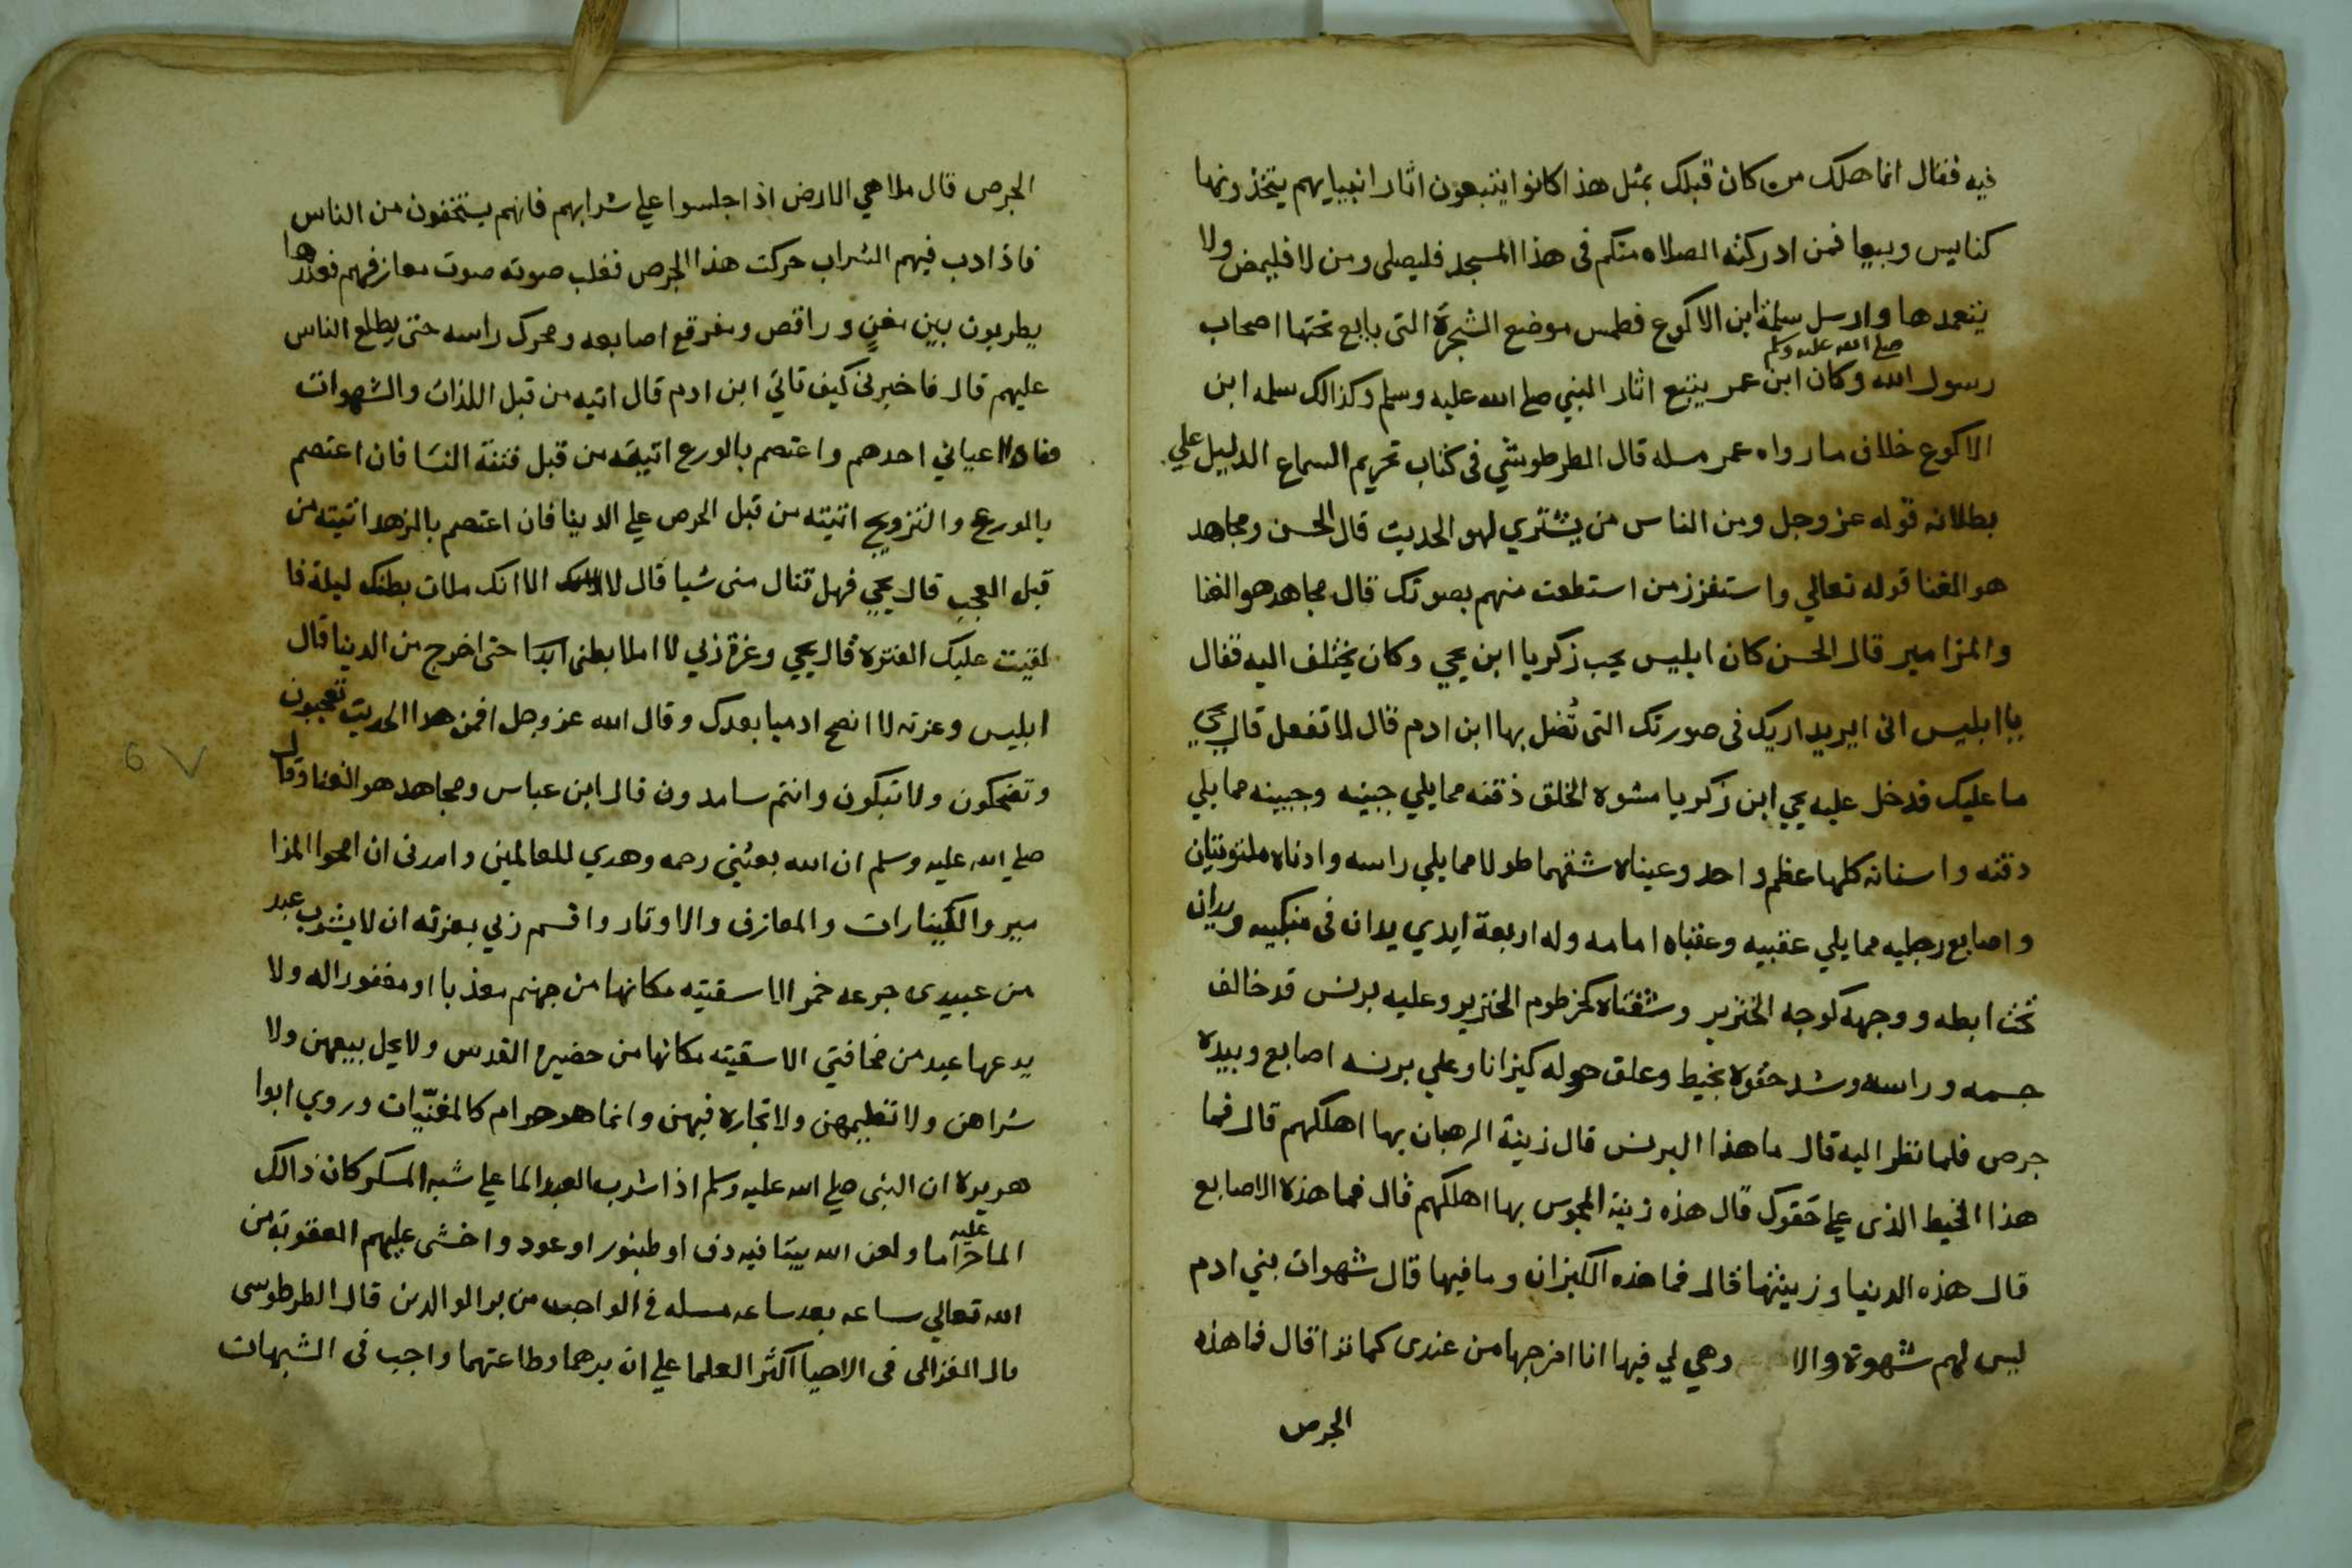 فيه فقال انما هلك من كان قبلك بمثل هذا كانوا يتبعون اثار انبيايهم يتخذونها
كنايس وبيعا فمن ادركته الصلاه منكم فى هذا المسجد فليصلى ومن لا فليمض ولا
يتعمدها وارسل سلمة ابن الاكوع فطمس موضع الشجرة التى بايع تحتها اصحاب
صلى الله عليه وسلم
رسول الله وكان ابن عمر يتبع اثار النبي صلى الله عليه وسلم وكذالك سلمه ابن
الاكوع خلاف ما رواه عمر مسله قال الطرطوشي فى كتاب تحريم السماع الدليل علي
بطلانه قوله عز وجل ومن الناس من يشتري لهو الحديث قال الحسن ومجاهد
هو الغنا قوله تعالي واستفزز من استطعت منهم بصوتك قال مجاهد هو الغنا
والمزامير قال الحسن كان ابليس يحب زكريا ابن يحي وكان يختلف اليه فقال
يا ابليس انى اريد اريك فى صورتك التى تُضل بها ابن ادم قال لا تفعل قال يحي
ما عليك فدخل عليه يحي ابن زكريا مشوه الخلق ذقنه ممايلي جبينه وجبينه ممايلي
دقنه واسنانه كلها عظم واحد وعيناه شقهما طولا ممايلي راسه واذناه ملتويتان
واصابع رجليه ممايلي عقبيه وعقباه امامه وله اربعة ايدي يدان فى منكبيه ويدان
تحت ابطه ووجهه كوجه الخنزير وشفتاه كخرطوم الخنزير وعليه برنس قد خالف
جسمه وراسه وشد حقوه بخيط وعلق حوله كيزانا وعلي برنسه اصابع وبيده
جرص فلما نظر اليه قال ما هذا البرنس قال زينة الرهبان بها اهلكهم قال فما
هذا الخيط الذى على حَقوك قال هذه زينة المجوس بها اهلكهم قال فما هذه الاصابع
قال هذه الدنيا وزينتها قال فما هذه الكيزان وما فيها قال شهوات بني ادم
ليس لهم شهوة والا وهي لي فيها انا اخرجها من عندى كما ترا قال فما هذه
الجرص
الجرص قال ملاهي الارض اذا جلسوا علي شرابهم فانهم يستخفون من الناس
فاذا دب فيهم الشراب حركت هذا الجرص فغلب صوته صوت معازفهم فعندها
يطربون بين مغنٍ وراقص ومفرقع اصابعه ومحرك راسه حتى يطلع الناس
عليهم قال فاخبرنى كيف تاتي ابن ادم قال اتيه من قبل اللذات والشهوات
فاذا اعياني احدهم واعتصم بالورع اتيته من قبل فتنة النسَا فان اعتصم
بالورع والتزويج اتيته من قبل الحرص علي الدينا فان اعتصم بالزهد اتيته من
قبل العجب قال يحي فهل تنال منى شيا قال لا الا انك ملات بطنك ليلة فا
لقيت عليك الفتره قال يحيي وعزة ربي لا املا بطنى ابدا حتى اخرج من الدينا قال
ابليس وعزته لا انصح ادميا بعدك وقال الله عز وجل افمن هدا الحديث تعجبون
وتضحكون ولا تبكون وانتم سامدون قال ابن عباس ومجاهد هو الغنا وقال
صلي الله عليه وسلم ان الله بعثني رحمه وهدي للعالمين وامرنى ان امحوا المزا
مير والكينارات والمعازف والاوتار واقسم ربي بعزته ان لا يشرب عبد
من عبيدى جرعه خمر الا سقيته مكانها من جهنم معذبا او مغفورا له ولا
يدعها عبد من مخافتي الا سقيته مكانها من حضيرة القدس ولا يحل بيعهن ولا
شراهن ولا تعليمهن ولا تجاره فيهن وانما هو حرام كالمغنّيات وروي ابوا
هريرة ان النبى صلي الله عليه وسلم اذا شرب العبد الما علي شبه المسكر كان ذالك
عليه
الما حراما ولعن الله بيتا فيه دف او طبنور او عود واخشى عليهم العقوبة من
الله تعالي ساعه بعد ساعه مسله فى الواجب من بر الوالدين قال الطرطوسى
قال الغزالى فى الاحيا اكثر العلما علي ان برهما وطاعتهما واجب فى الشبهات